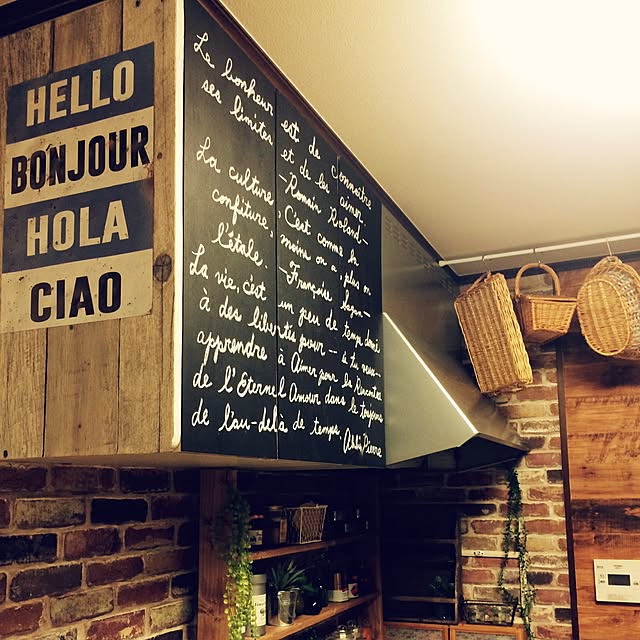 HELLO
BONJOUR
HOLA
CIAO
Le bonheur est de connaître
ses limites et de les aimer
-Romain Roland-
La culture, C'est comme la
confiture, moins on a, plus on
l'étale. -Françoise Sagan-
La vie, c'est un peu de temps donné
à des libertés pour - si tu veux -
apprendre à Aimer pour la Rencontre
de l'Eternel Amour dans le toujours
de l'au-delà de temps. Abbé Pierre